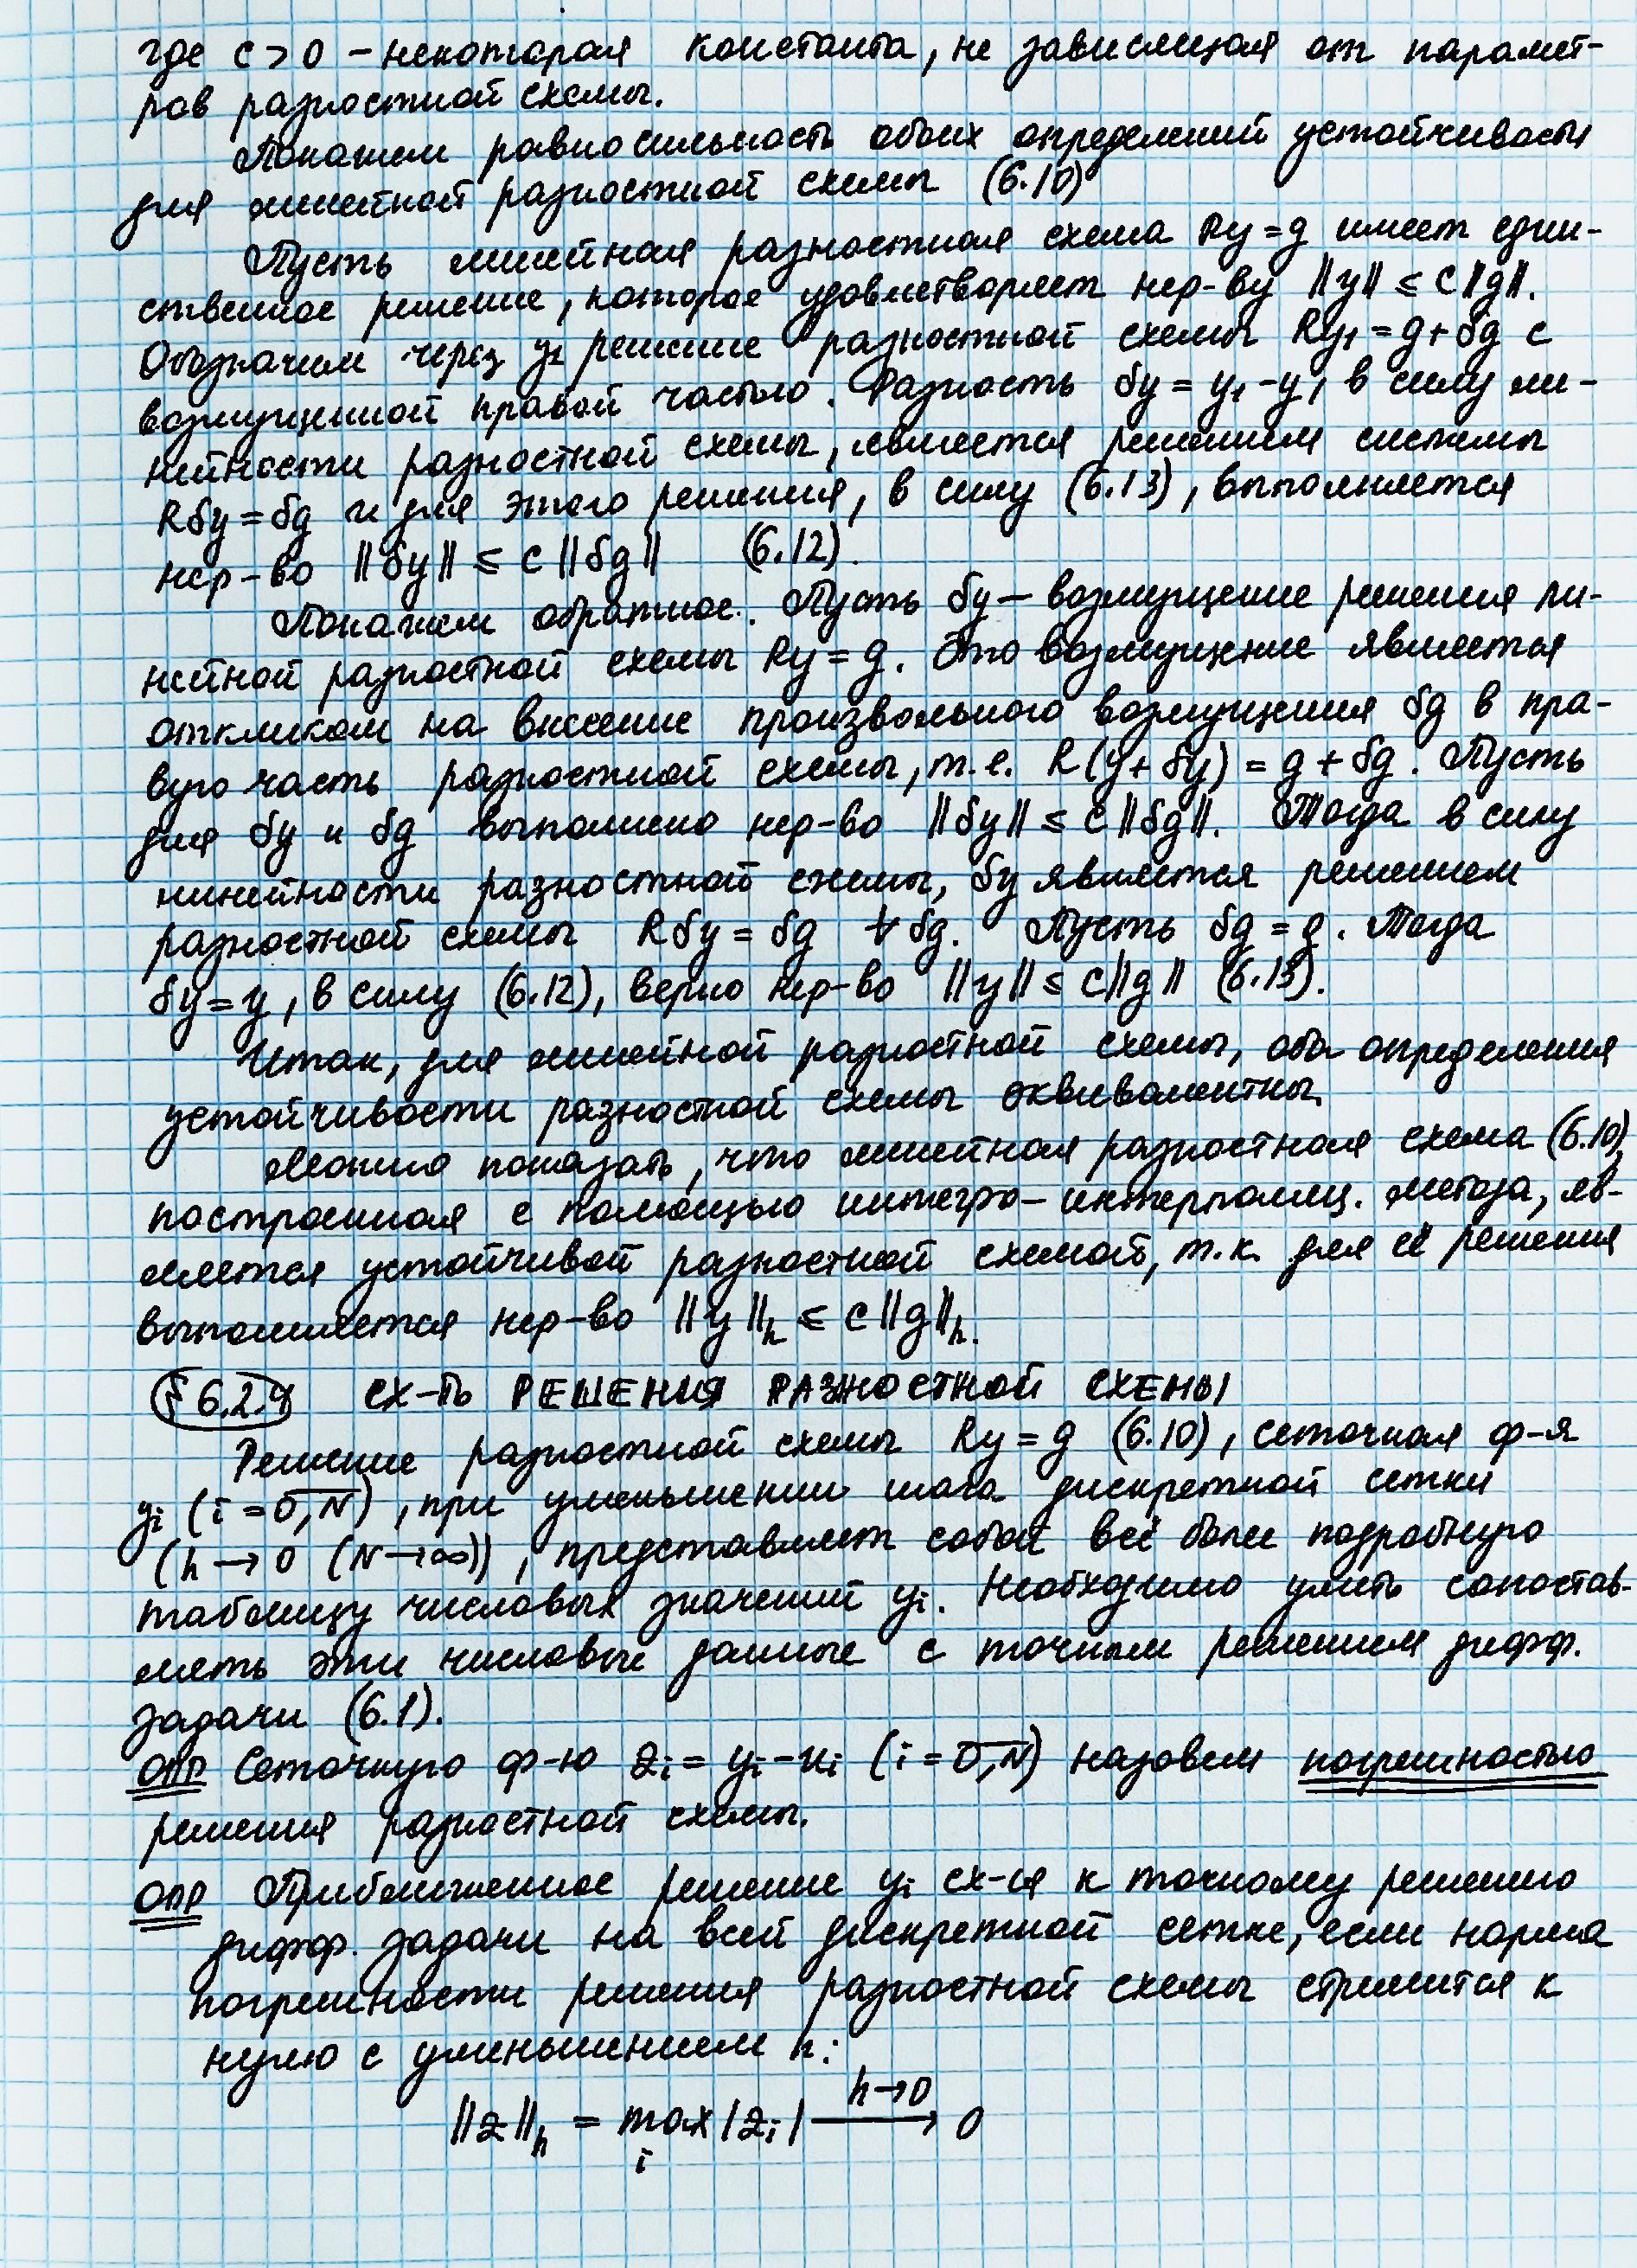 где c > 0 – некоторая константа, не зависящая от парамет-
ров разностной схемы.
Покажем равносильность обоих определений устойчивости
для линейной разностной схемы (6.10)
Пусть линейная разностная схема Ry = g имеет един-
ственное решение, которое удовлетворяет нер-ву ||y|| ≤ c||g||.
Обозначим через y₁ решение разностной схемы Ry₁ = g + δg с
возмущенной правой частью. Разность δy = y₁ - y, в силу ли-
нейности разностной схемы, является решением системы
Rδy = δg и для этого решения, в силу (6.13), выполняется
нер-во ||δy|| ≤ c||δg|| (6.12).
Покажем обратное. Пусть δy – возмущение решения ли-
нейной разностной схемы Ry = g. Это возмущение является
откликом на внесение произвольного возмущения δg в пра-
вую часть разностной схемы, т.е. R(y + δy) = g + δg. Пусть
для δy и δg выполнено нер-во ||δy|| ≤ c||δg||. Тогда в силу
линейности разностной схемы, δy является решением
разностной схемы Rδy = δg ∀ δg. Пусть δg = g. Тогда
δy = y, в силу (6.12), верно нер-во ||y|| ≤ c||g|| (6.13).
Итак, для линейной разностной схемы, оба определения
устойчивости разностной схемы эквивалентны.
Можно показать, что линейная разностная схема (6.10),
построенная с помощью интегро-интерполяц. метода, яв-
ляется устойчивой разностной схемой, т.к. для её решения
выполняется нер-во ||y||ₕ ≤ c||g||ₕ.
§ 6.2.4 СХ-ТЬ РЕШЕНИЯ РАЗНОСТНОЙ СХЕМЫ
Решение разностной схемы Ry = g (6.10), сеточная ф-я
yᵢ (i = 0,N), при уменьшении шага дискретной сетки
(h → 0 (N → ∞)), представляет собой всё более подробную
таблицу числовых значений yᵢ. Необходимо уметь сопостав-
лять эти числовые данные с точным решением дифф.
задачи (6.1).
ОПР Сеточную ф-ю zᵢ = yᵢ - uᵢ (i = 0,N) назовем погрешностью
решения разностной схемы.
ОПР Приближенное решение yᵢ сх-ся к точному решению
дифф. задачи на всей дискретной сетке, если норма
погрешности решения разностной схемы стремится к
нулю с уменьшением h:
||z||ₕ = max |zᵢ| → 0
h→0
i